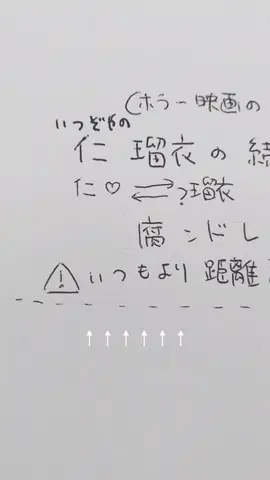 (ホラー映画の
いつぞやの
仁 瑠衣の続
仁♡ ⇄ ?瑠衣
腐ンドレ
⚠ いつもより距離
↑ ↑ ↑ ↑ ↑ ↑